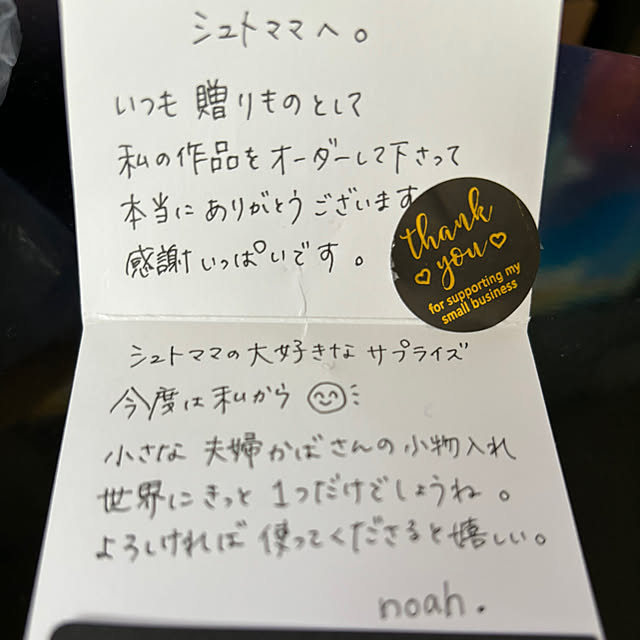 シュトママへ。
いつも 贈りものとして
私の作品をオーダーして下さって
本当に ありがとうございます
感謝いっぱいです。
thank
you
for supporting my
small business
シュトママの大好きな サプライズ
今度は私から
小さな 夫婦かばさんの小物入れ
世界にきっと 1つだけでしょうね。
よろしければ 使ってくださると嬉しい。
noah.